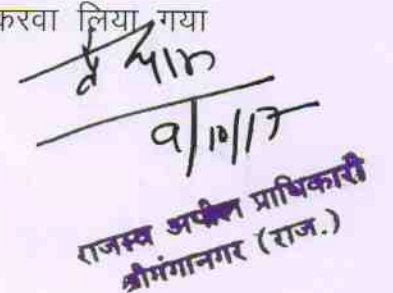 करवा लिया गया
9/10/17
राजस्व अपील प्राधिकारी
श्रीगंगानगर (राज.)